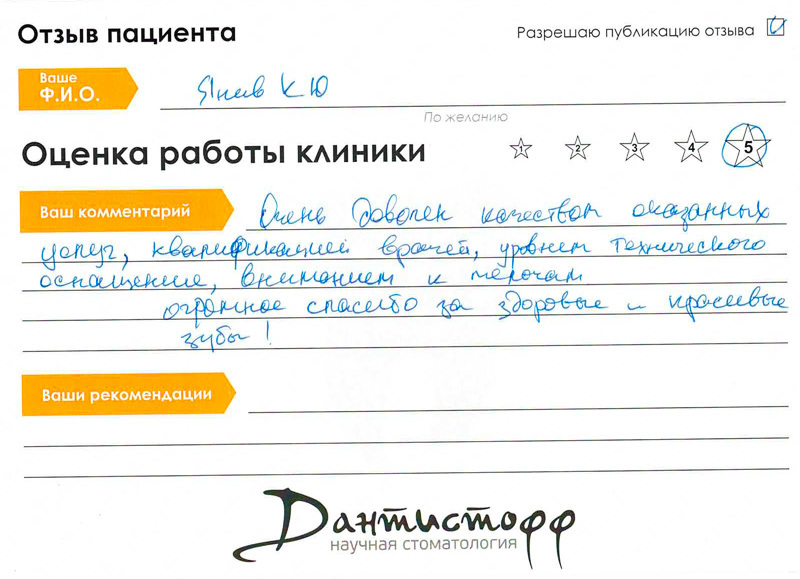 Отзыв пациента
Разрешаю публикацию отзыва
Ваше
Ф.И.О.
К Ю
По желанию
Оценка работы клиники
1 2 3 4 5
Ваш комментарий
Очень доволен качеством оказанных
услуг, квалификацией врачей, уровнем технического
оснащение, вниманием к мелочам
огромное спасибо за здоровые и красивые
зубы!
Ваши рекомендации
Дантистофф
научная стоматология